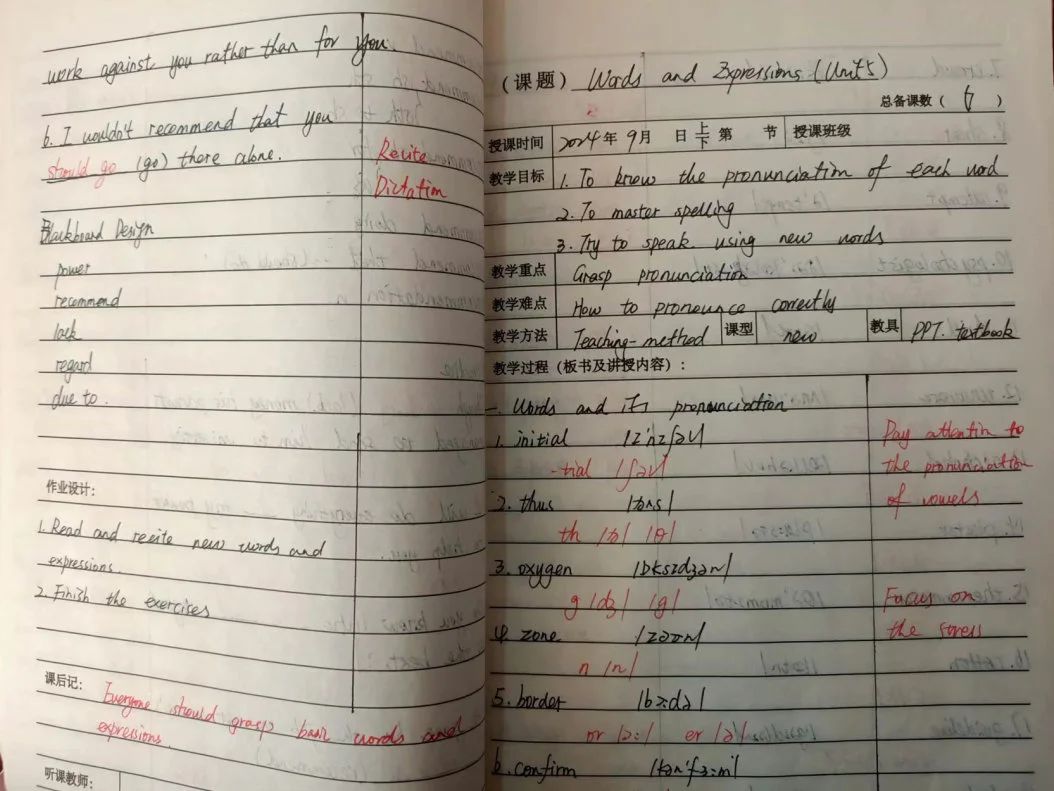 work against you rather than for you.
6. I wouldn't recommend that you
should go (go) there alone.
Recite
Dictation
Blackboard Design
power
recommend
lack
regard
due to.
作业设计：
1. Read and recite new words and
expressions.
2. Finish the exercises
课后记：
Everyone should grasp basic words and
expressions.
听课教师：
（课题） Words and Expressions (Unit 5)
总备课数（ 6 ）
授课时间 2024年 9月 日 上 下 第 节 授课班级
教学目标 1. To know the pronunciation of each word
2. To master spelling
3. Try to speak using new words
教学重点 Grasp pronunciation
教学难点 How to pronounce correctly
教学方法 Teaching-method 课型 new 教具 PPT. textbook
教学过程（板书及讲授内容）：
一. Words and its pronunciation
1. initial /ɪ'nɪʃəl/
-tial /ʃəl/
2. thus /ðʌs/
th /ð/ /θ/
3. oxygen /ɒksɪdʒən/
g /dʒ/ /g/
4. zone /zəʊn/
n /n/
5. border /bɔːdə/
or /ɔː/ er /ə/
6. confirm /kən'fɜːm/
Pay attentin to
the pronunciation
of vowels
Focus on
the stress